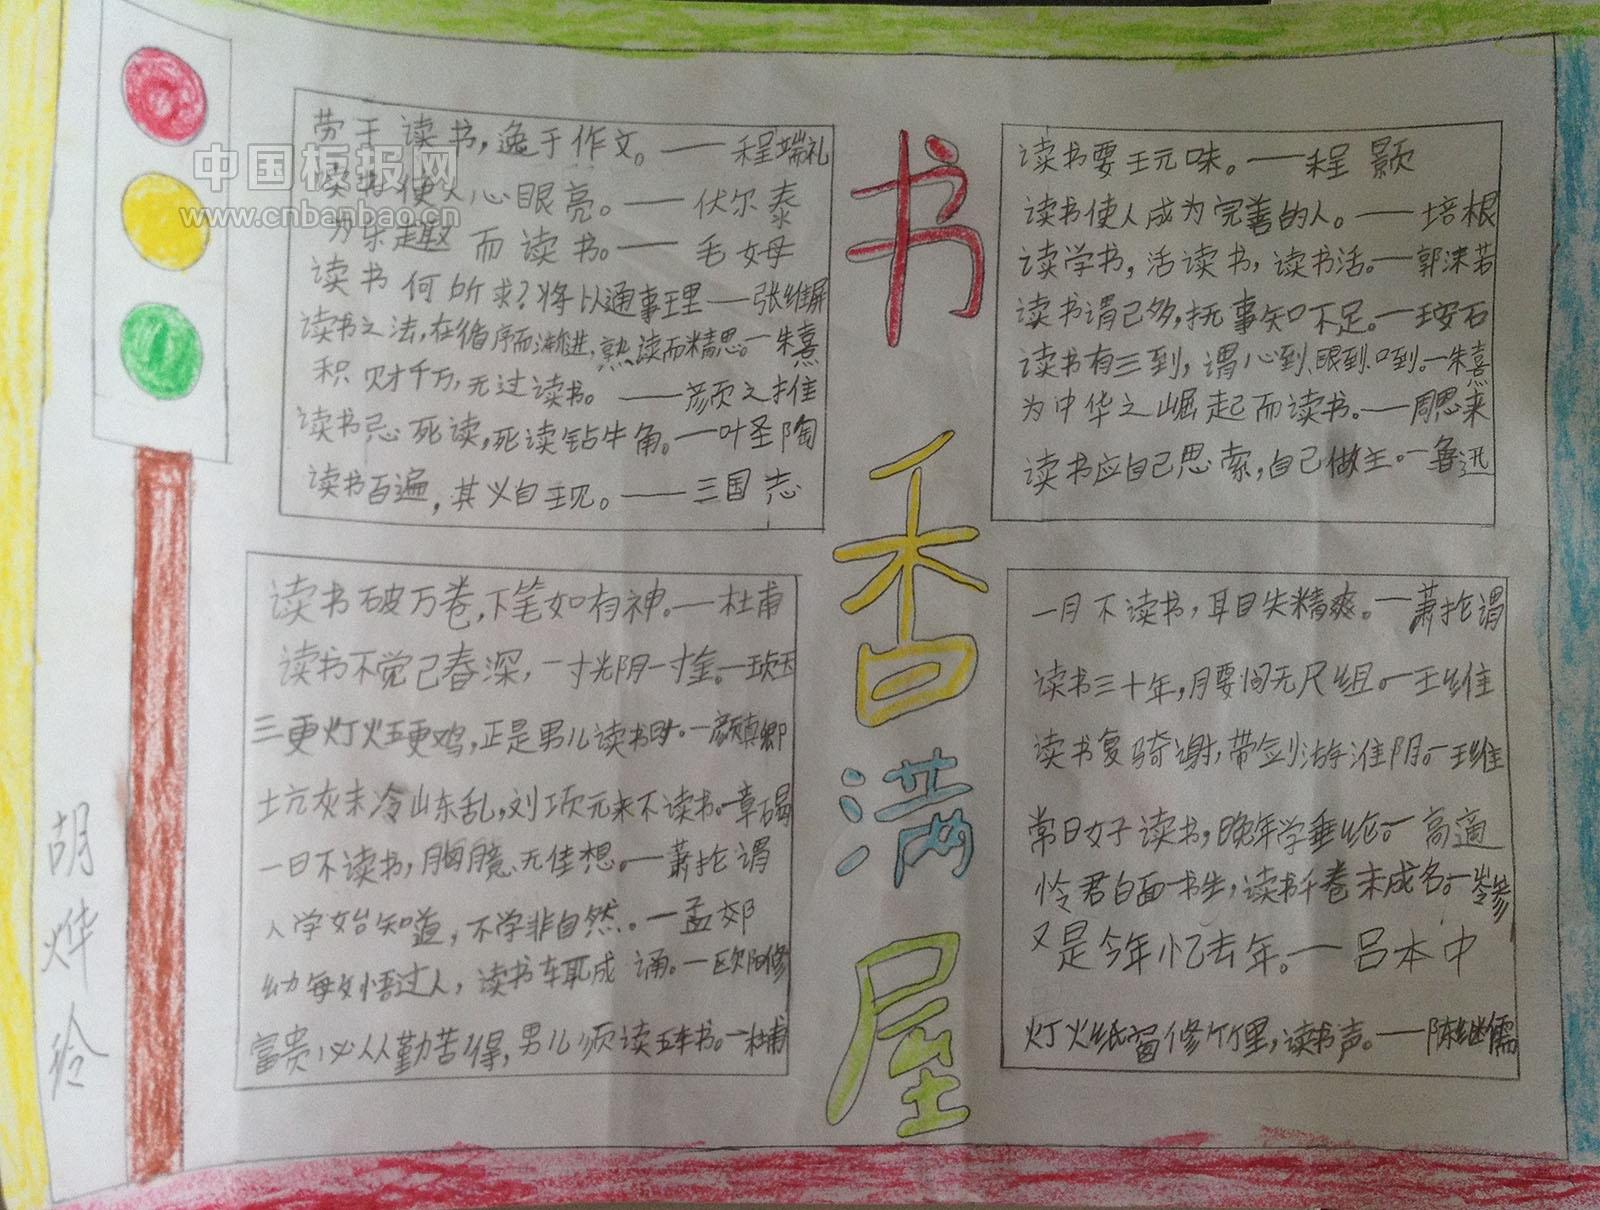 中国板报网
www.cnbanbao.cn
劳于读书,逸于作文。——程端礼
读书使人心眼亮。——伏尔泰
为乐趣而读书。——毛姆
读书何所求?将以通事理——张维屏
读书之法,在循序而渐进,熟读而精思。—朱熹
积财千万,无过读书。——颜之推
读书忌死读,死读钻牛角。——叶圣陶
读书百遍,其义自现。——三国志
书香满屋
读书要玩味。——程颢
读书使人成为完善的人。——培根
读学书,活读书,读书活。——郭沫若
读书谓已多,抚事知不足。—王安石
读书有三到,谓心到、眼到、口到。—朱熹
为中华之崛起而读书。——周恩来
读书应自己思索,自己做主。—鲁迅
读书破万卷,下笔如有神。—杜甫
读书不觉己春深,一寸光阴一寸金。—王贞
三更灯火五更鸡,正是男儿读书时。—颜真卿
土亢灰未冷山东乱,刘项元来不读书。—章碣
一日不读书,胸臆无佳想。—萧抡谓
人学始知道,不学非自然。—孟郊
幼每悟过人,读书车取成诵。—欧阳修
富贵必从勤苦得,男儿须读五车书。—杜甫
一月不读书,耳目失精爽。—萧抡谓
读书三十年,腰间无尺组。—王维
读书复骑谢,带剑游淮阴。—王维
常日好读书,晚年学垂纶。—高適
怜君白面一书生,读书千卷未成名。—岑参
又是今年忆去年。——吕本中
灯火纸窗修竹里,读书声。——陈继儒
胡烨玲